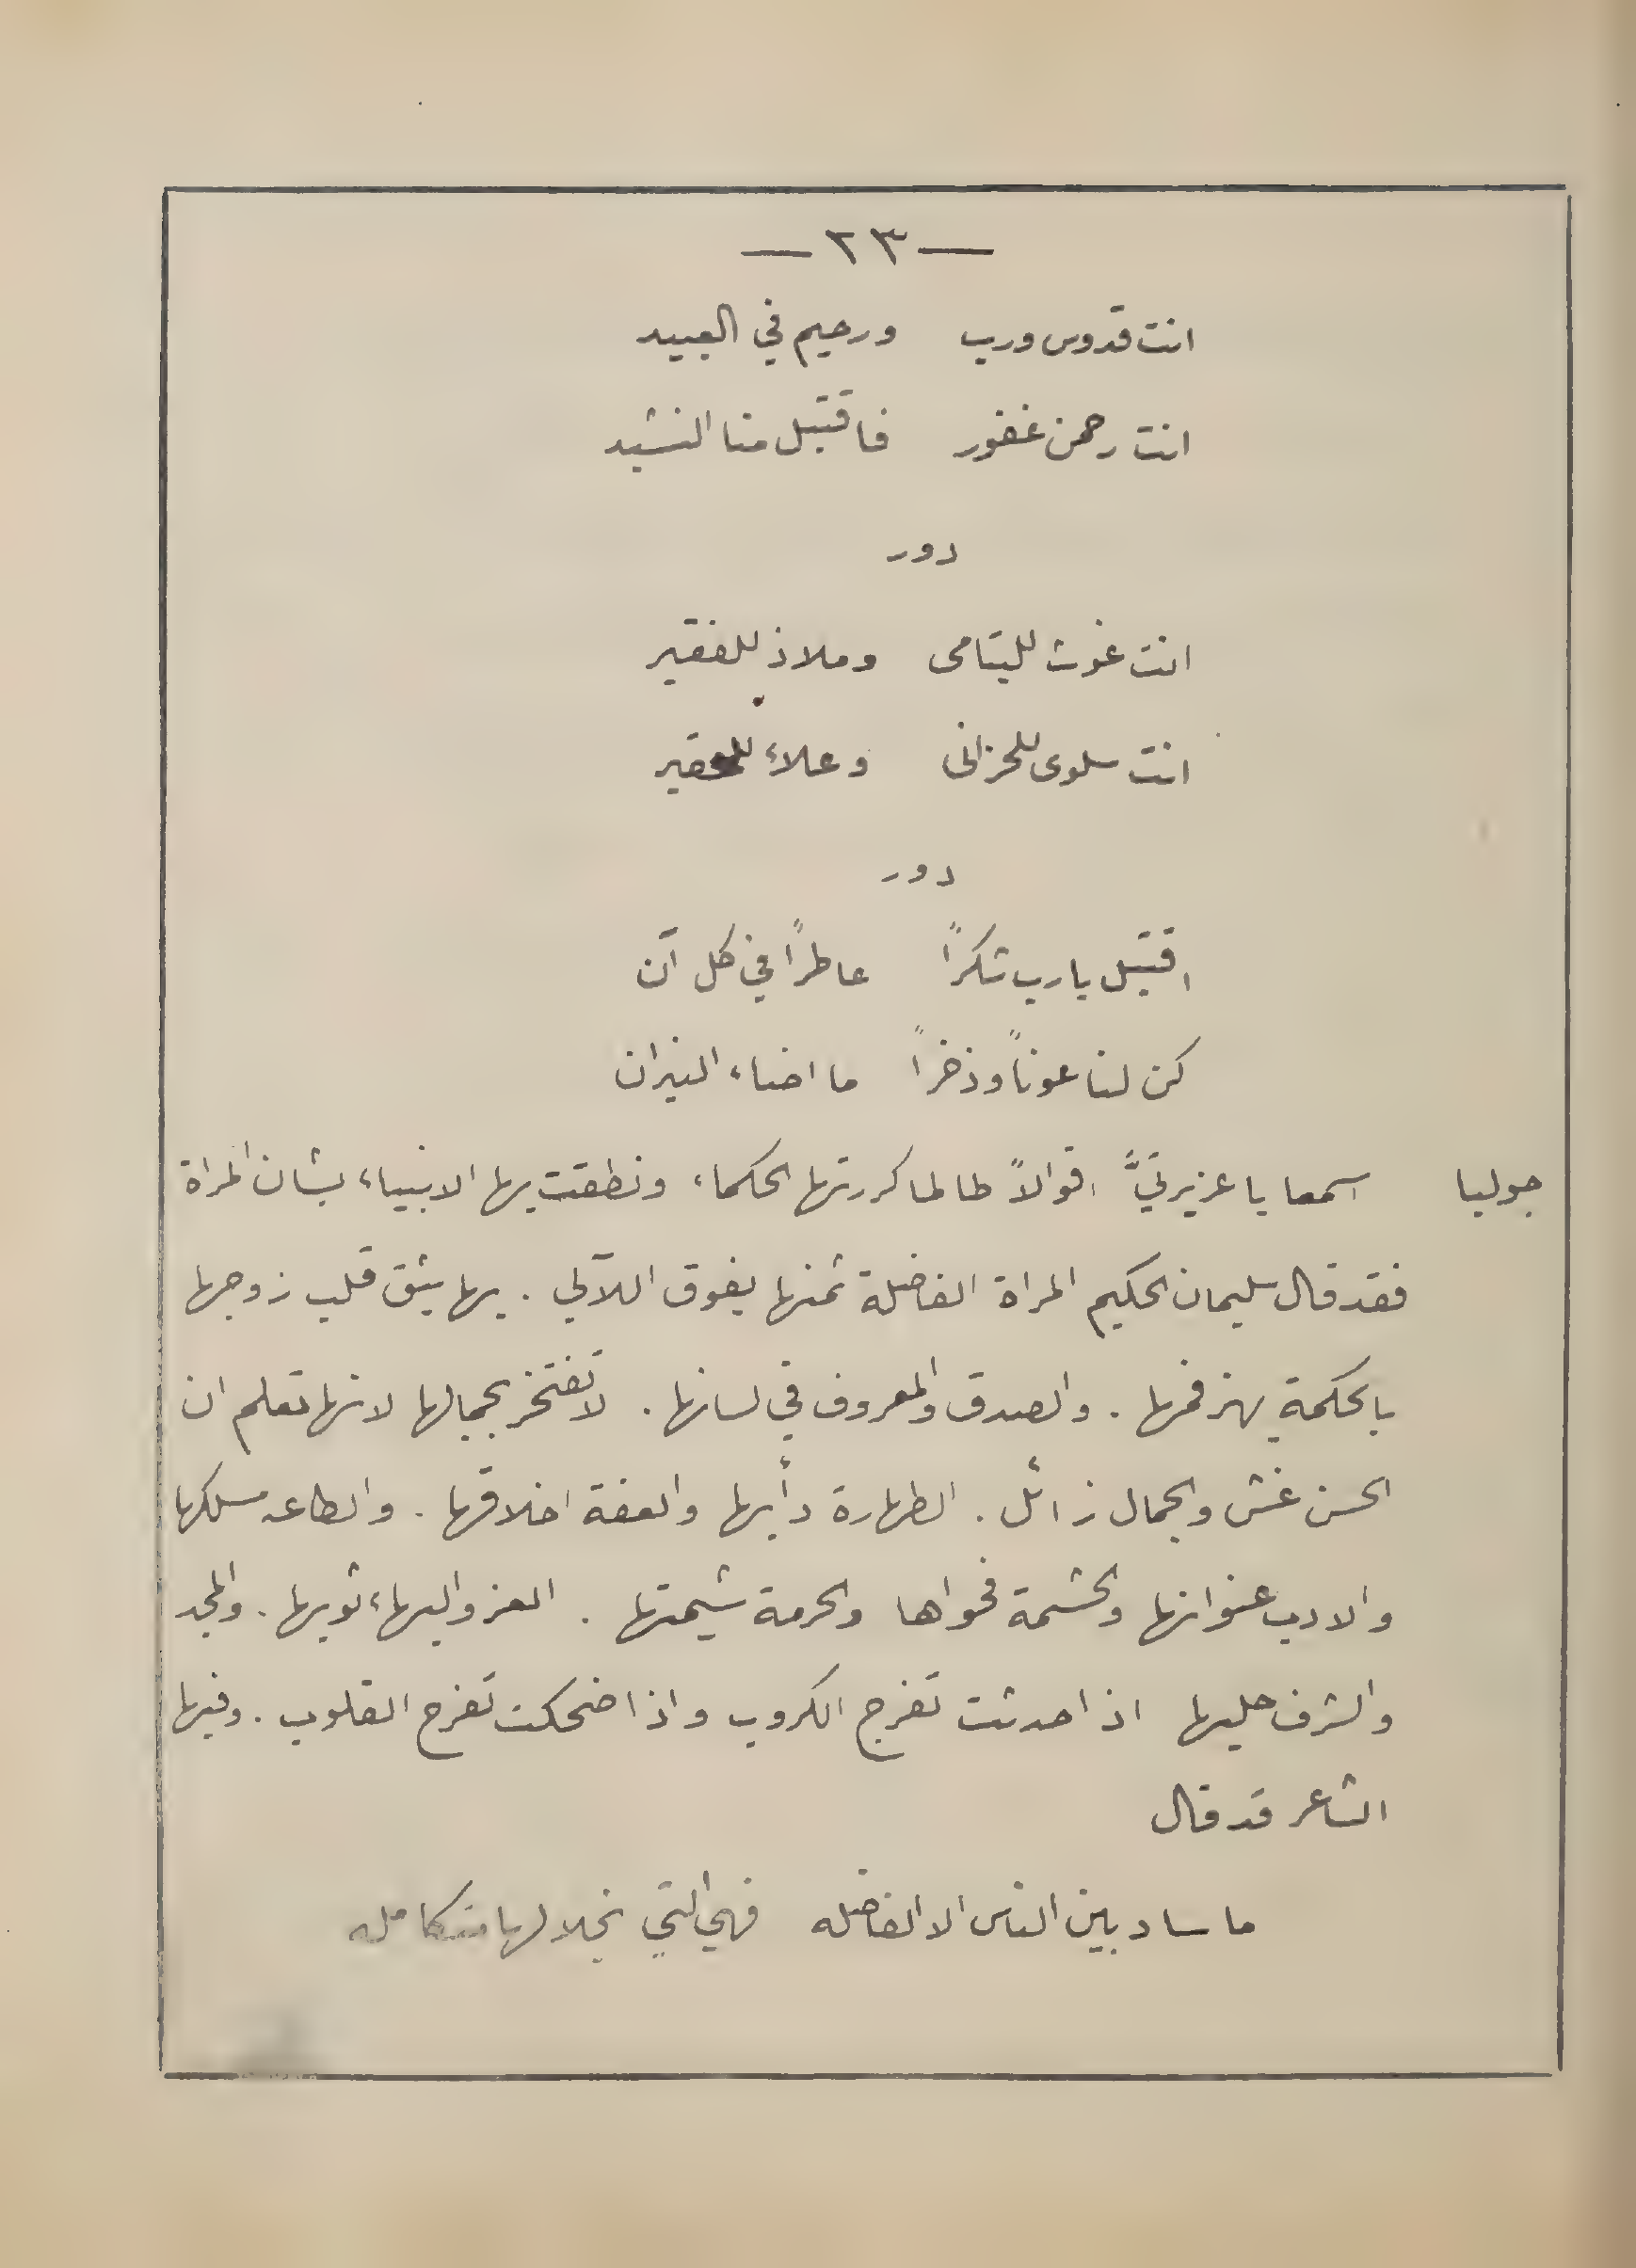 — ٢٣ —
انت قدوس ورب ورحيم في العبيد
انت رحمن غفور فاقتبل منا النشيد
دور
انت غوث لليتامى وملاذ للفقير
انت سلوى للحزانى وعلاء للحقير
دور
اقتبل يا رب شكرًا عاطرًا في كل آن
كن لنا عونًا وذخرًا ما اضاء النيران
جوليا اسمعا يا عزيزتيَّ اقوالاً طالما كررتها الحكماء ونطقت بها الانبياء بشان المراة
فقد قال سليمان الحكيم المراة الفاضلة ثمنها يفوق اللآلي . بها يثق قلب زوجها
بالحكمة يهز فمها . والصدق والمعروف في لسانها . لا تفتخر بجمالها لانها تعلم ان
الحسن غش والجمال زائل . الطهارة دأبها والعفة اخلاقها . والطاعه مسلكها
والادب عنوانها والحشمة فحواها والحرمة شيمتها . العز والبهاء ثوبها . والمجد
والشرف حليها اذا حدثت تفرج الكروب واذا ضحكت تفرح القلوب . وفيها
الشاعر قد قال
ما ساد بين الناس الا الفاضله فهي التي بخلالها متكامله